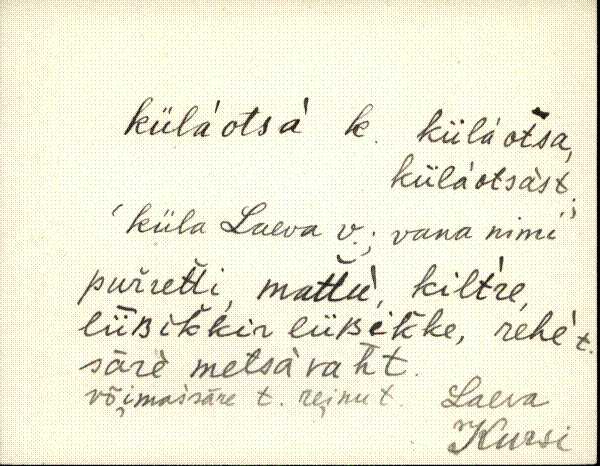 külàotsà k. külàotsa,
külàotsàst;
'küla Laeva v.; vana nimi'
purretti, mattu, kiltre,
lüʙikkir lüʙikke, rehe t.
säre metsàvaht.
võimassäre t. reinu t. Laeva
Kursi